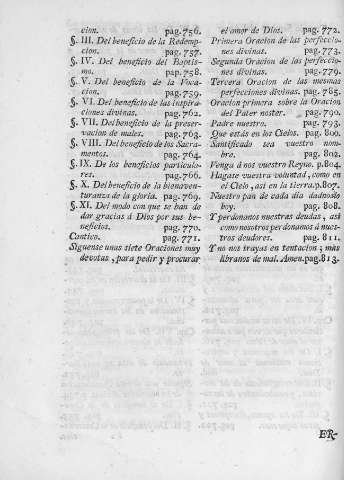 cion. pag.756.
§. III. Del beneficio de la Redemp-
cion. pag.757.
§. IV. Del beneficio del Baptis-
mo. pap.758.
§. V. Del beneficio de la Voca-
cion. pag.759.
§. VI. Del beneficio de las inspira-
ciones divinas. pag.762.
§. VII. Del beneficio de la preser-
vacion de males. pag.763.
§. VIII. Del beneficio de los Sacra-
mentos. pag.764.
§. IX. De los beneficios particulo-
res. pag.766.
§. X. Del beneficio de la bienaven-
turanza de la gloria. pag.769.
§. XI. Del modo con que se han de
dar gracias á Dios por sus be-
neficios. pag.770.
Cantico. pag.771.
Siguense unas siete Oraciones muy
devotas, para pedir y procurar
el amor de Dios. pag.772.
Primera Oracion de las perfeccio-
nes divinas. pag.773.
Segunda Oracion de las perfeccio-
nes divinas. pag.779.
Tercera Oracion de las mesmas
perfecciones divinas. pag.785.
Oracion primera sobre la Oracion
del Pater noster. pag.790.
Padre nuestro. pag.793.
Que estás en los Cielos. pag.800.
Santificado sea vuestro nom-
bre. pag.802.
Venga á nos vuestro Reyno. p.804.
Hagase vuestra voluntad, como en
el Cielo, asi en la tierra.p.807.
Nuestro pan de cada dia dadnoslo
hoy. pag.808.
Y perdonanos nuestras deudas, asi
como nosotros perdonamos á nues-
tros deudores. pag.811.
Y no nos trayas en tentacion; mas
libranos de mal. Amen.pag.813.
ER-